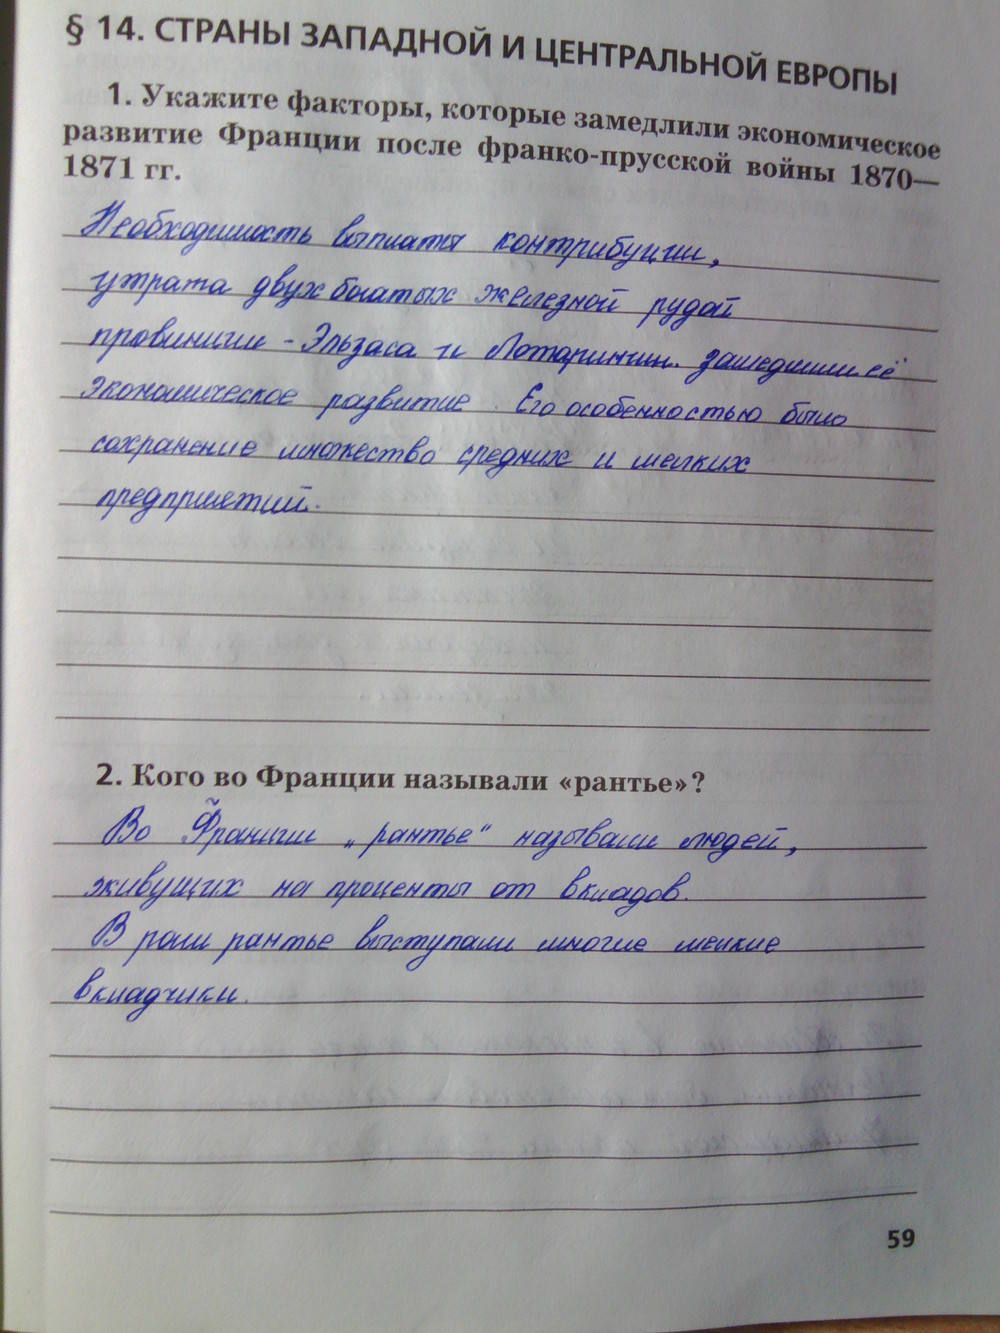 § 14. СТРАНЫ ЗАПАДНОЙ И ЦЕНТРАЛЬНОЙ ЕВРОПЫ
1. Укажите факторы, которые замедлили экономическое
развитие Франции после франко-прусской войны 1870—
1871 гг.
Необходимость выплаты контрибуции,
утрата двух богатых железной рудой
провинции - Эльзаса и Лотарингии. замедлили её
экономическое развитие. Его особенностью было
сохранение множество средних и мелких
предприятий.
2. Кого во Франции называли «рантье»?
Во Франции „рантье" называли людей,
живущих на проценты от вкладов.
В роли рантье выступали многие мелкие
вкладчики.
59